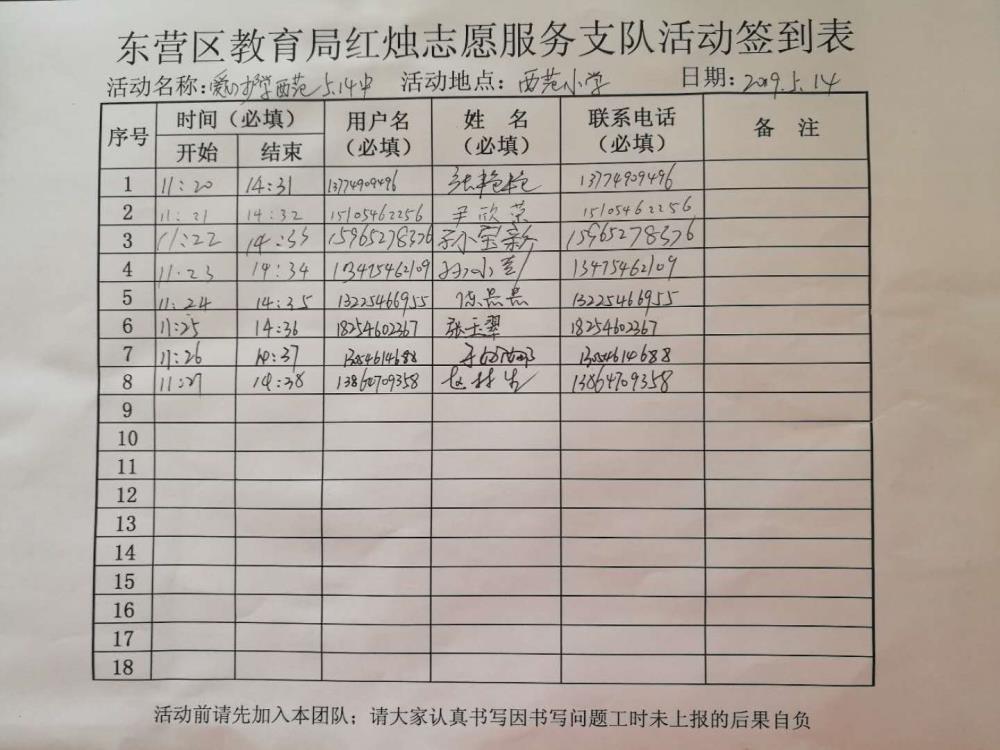 东营区教育局红烛志愿服务支队活动签到表
活动名称：爱心护学西苑5.14中 活动地点：西苑小学 日期：2019.5.14
序号 时间（必填） 用户名（必填） 姓 名（必填） 联系电话（必填） 备 注
开始 结束
1 11:20 14:31 13774909496 张艳艳 13774909496
2 11:21 14:32 15105462256 尹欣荣 15105462256
3 11:22 14:33 15965278376 孙宝新 15965278376
4 11:23 14:34 13475462109 13475462109
5 11:24 14:35 13225466955 陈晶晶 13225466955
6 11:25 14:36 18254602367 张玉翠 18254602367
7 11:26 14:37 13054614688 13054614688
8 11:27 14:38 13864709358 赵林生 13864709358
9
10
11
12
13
14
15
16
17
18
活动前请先加入本团队；请大家认真书写因书写问题工时未上报的后果自负